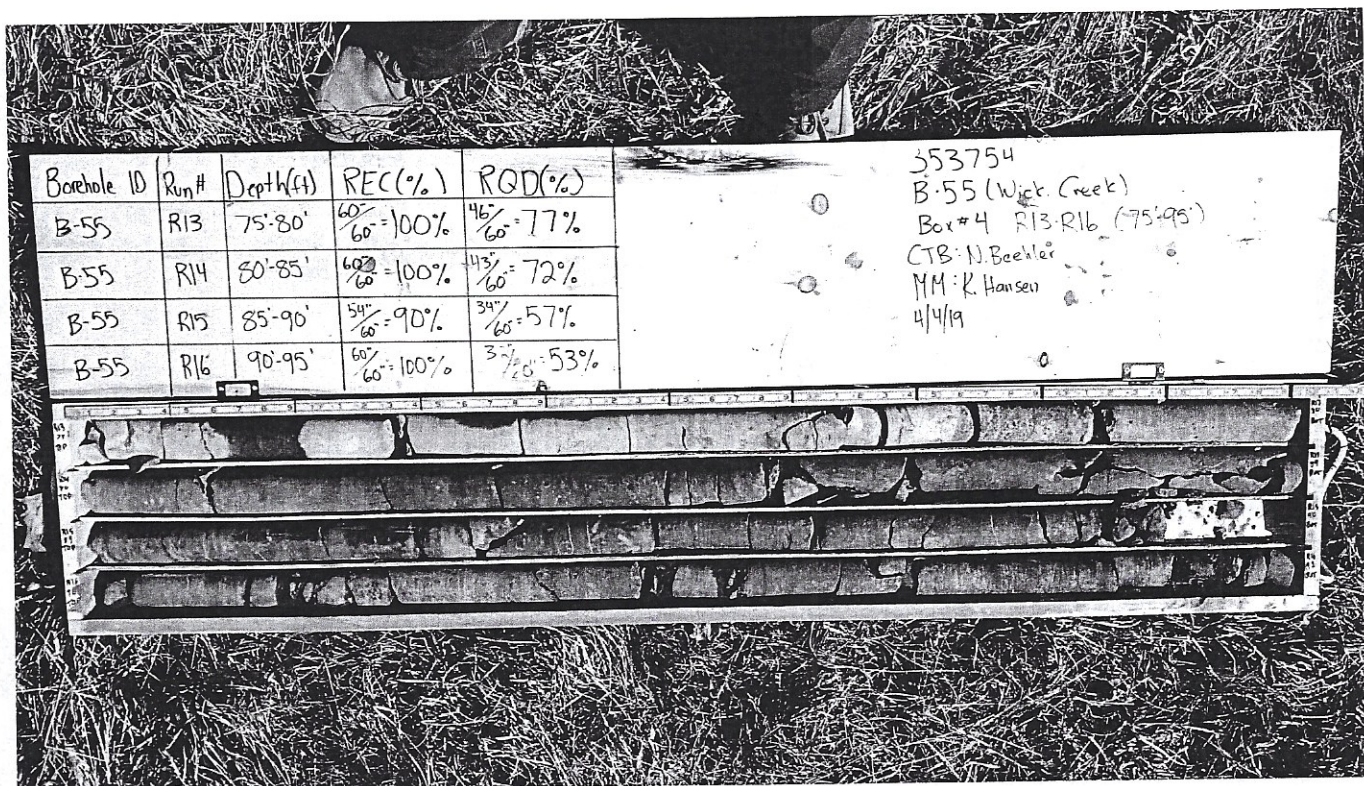 Borehole ID Run# Depth(ft) REC(%) RQD(%)
B-55 R13 75'-80' 60"/60"=100% 46"/60"=77%
B-55 R14 80'-85' 60"/60"=100% 43"/60"=72%
B-55 R15 85'-90' 54"/60"=90% 34"/60"=57%
B-55 R16 90'-95' 60"/60"=100% 53%
353754
B-55 (Wick. Creek)
Box #4 R13-R16 (75'-95')
CTB: N.Beehler
MM: K. Hansen
4/4/19